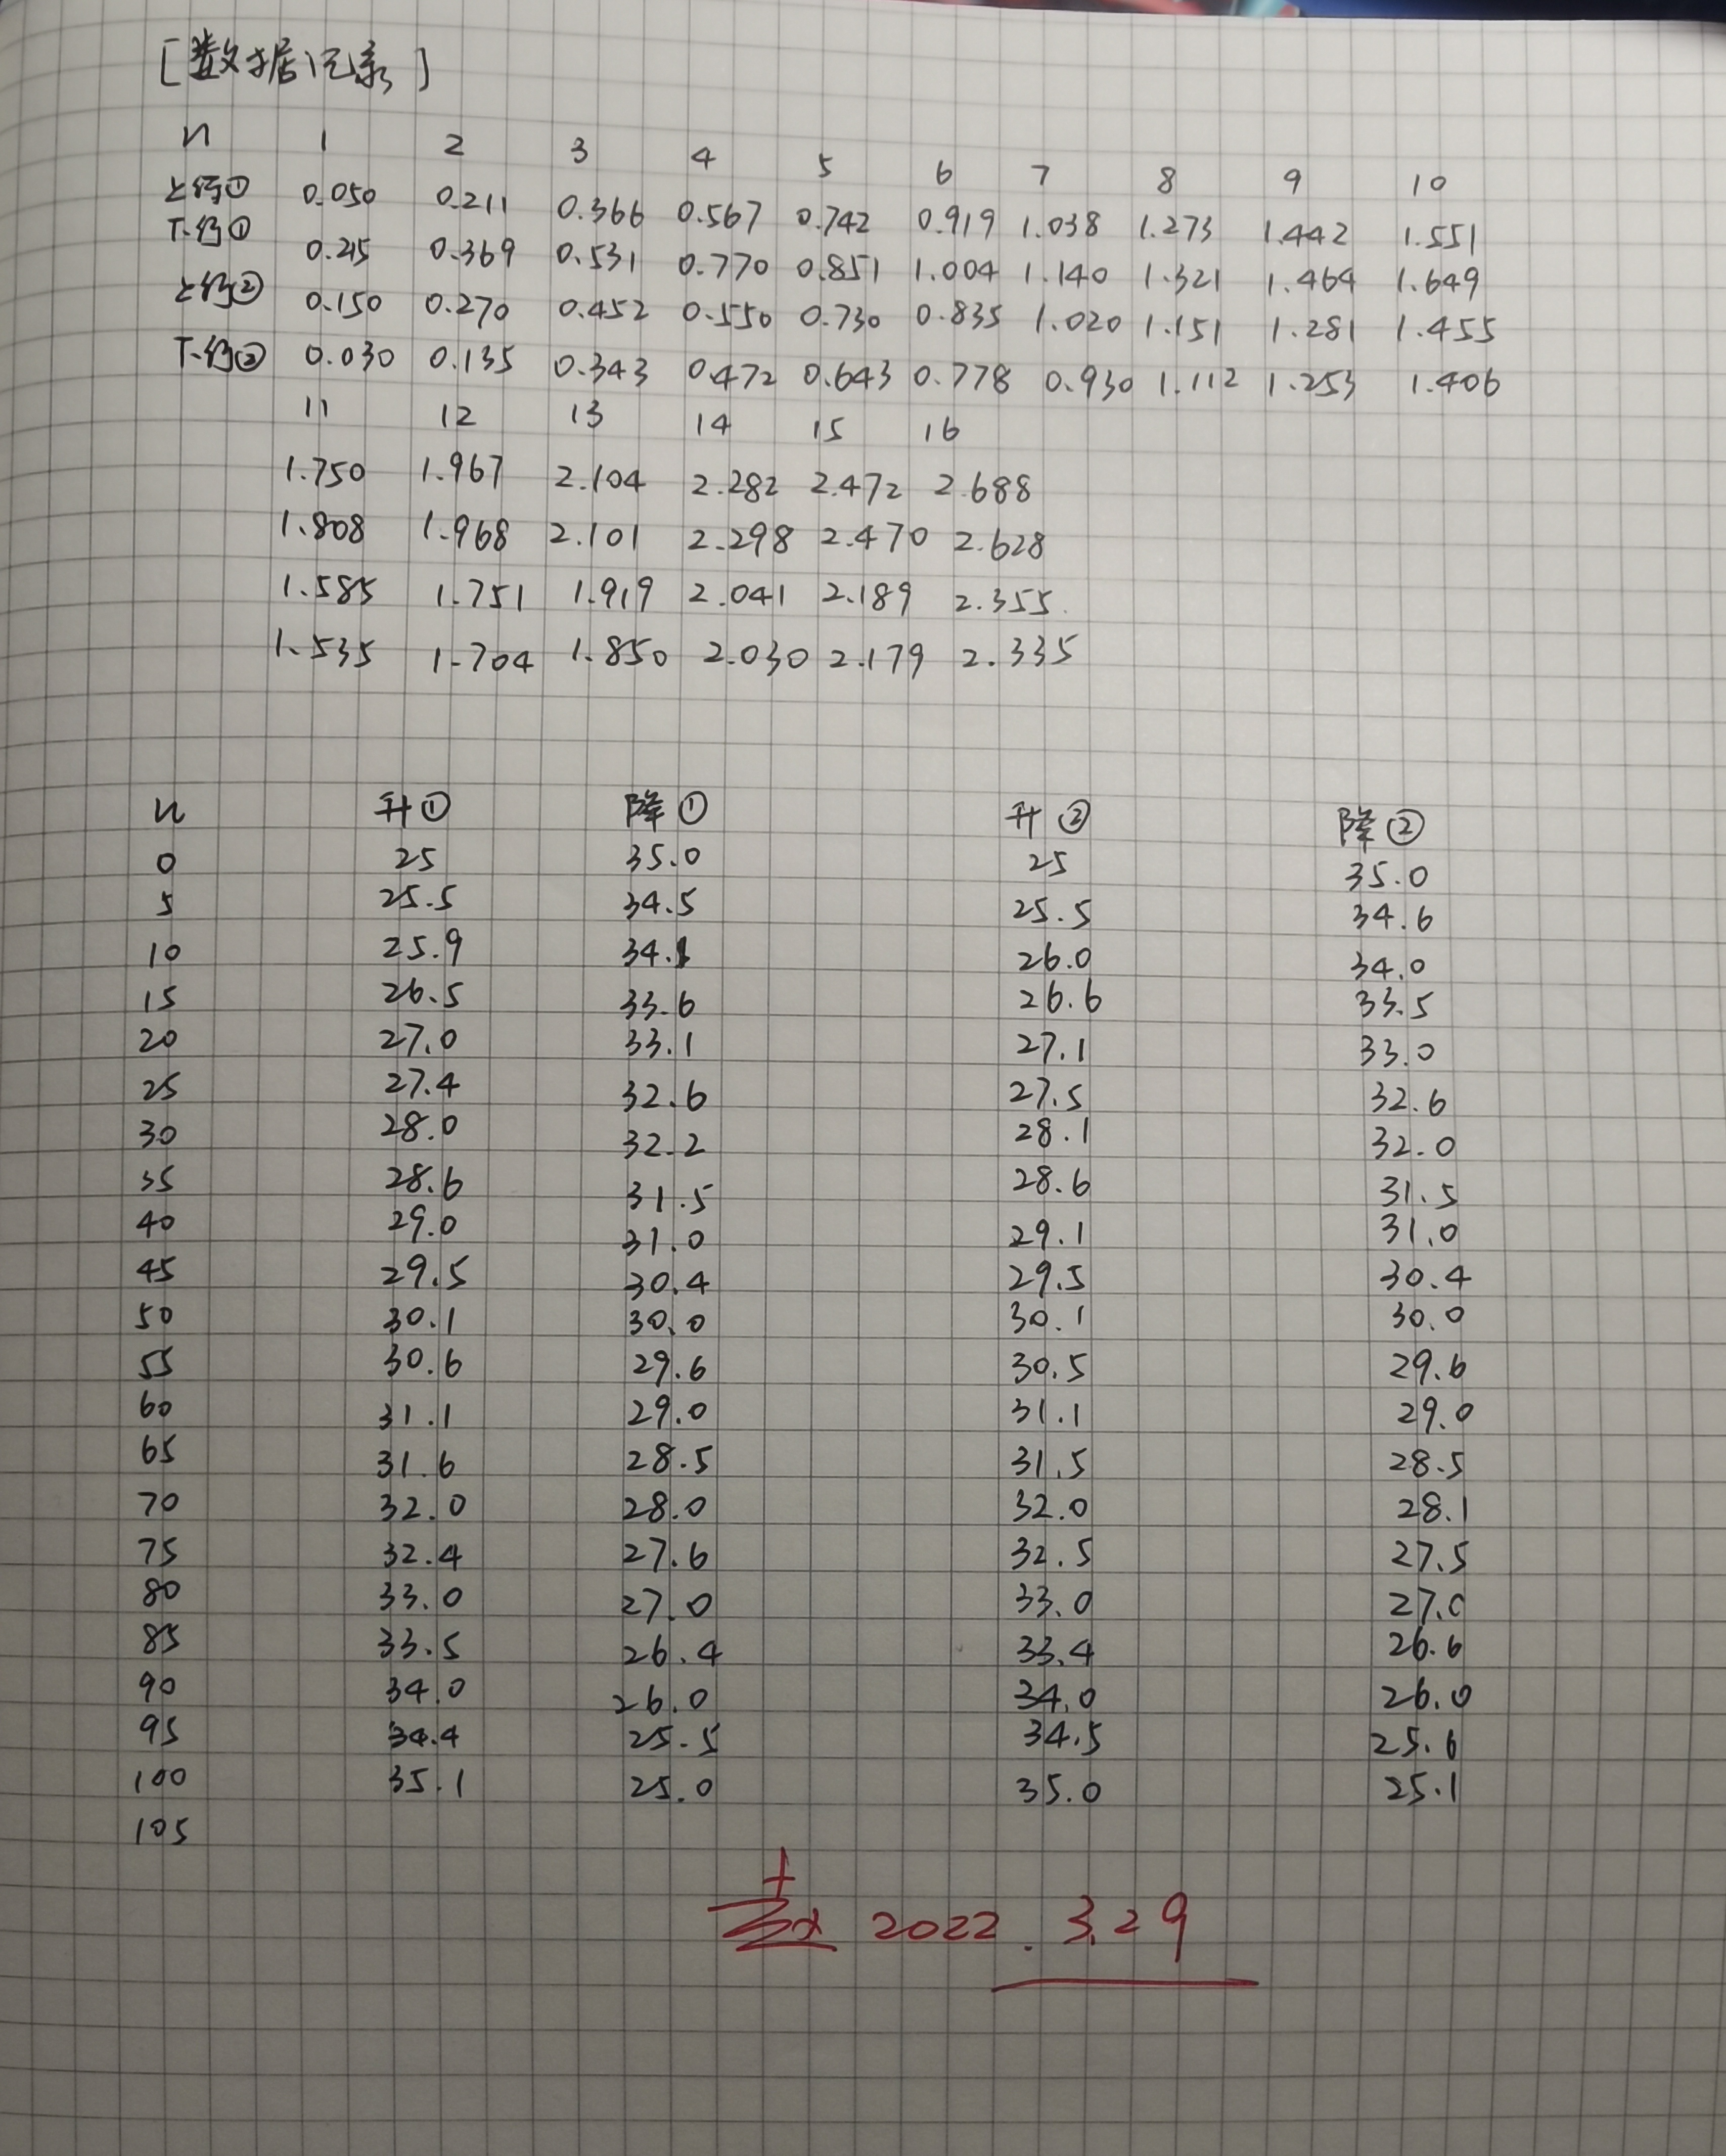 [数据记录]
n 1 2 3 4 5 6 7 8 9 10
上行① 0.050 0.211 0.366 0.567 0.742 0.919 1.038 1.273 1.442 1.551
下行① 0.215 0.369 0.531 0.770 0.851 1.004 1.140 1.321 1.464 1.649
上行② 0.150 0.270 0.452 0.550 0.730 0.835 1.020 1.151 1.281 1.455
下行② 0.030 0.135 0.343 0.472 0.643 0.778 0.930 1.112 1.253 1.406
11 12 13 14 15 16
1.750 1.967 2.104 2.282 2.472 2.688
1.808 1.968 2.101 2.298 2.470 2.628
1.585 1.751 1.919 2.041 2.189 2.355
1.535 1.704 1.850 2.030 2.179 2.335
n 升① 降① 升② 降②
0 25 35.0 25 35.0
5 25.5 34.5 25.5 34.6
10 25.9 34.1 26.0 34.0
15 26.5 33.6 26.6 33.5
20 27.0 33.1 27.1 33.0
25 27.4 32.6 27.5 32.6
30 28.0 32.2 28.1 32.0
35 28.6 31.5 28.6 31.5
40 29.0 31.0 29.1 31.0
45 29.5 30.4 29.5 30.4
50 30.1 30.0 30.1 30.0
55 30.6 29.6 30.5 29.6
60 31.1 29.0 31.1 29.0
65 31.6 28.5 31.5 28.5
70 32.0 28.0 32.0 28.1
75 32.4 27.6 32.5 27.5
80 33.0 27.0 33.0 27.0
85 33.5 26.4 33.4 26.6
90 34.0 26.0 34.0 26.0
95 34.4 25.5 34.5 25.6
100 35.1 25.0 35.0 25.1
105
2022.3.29